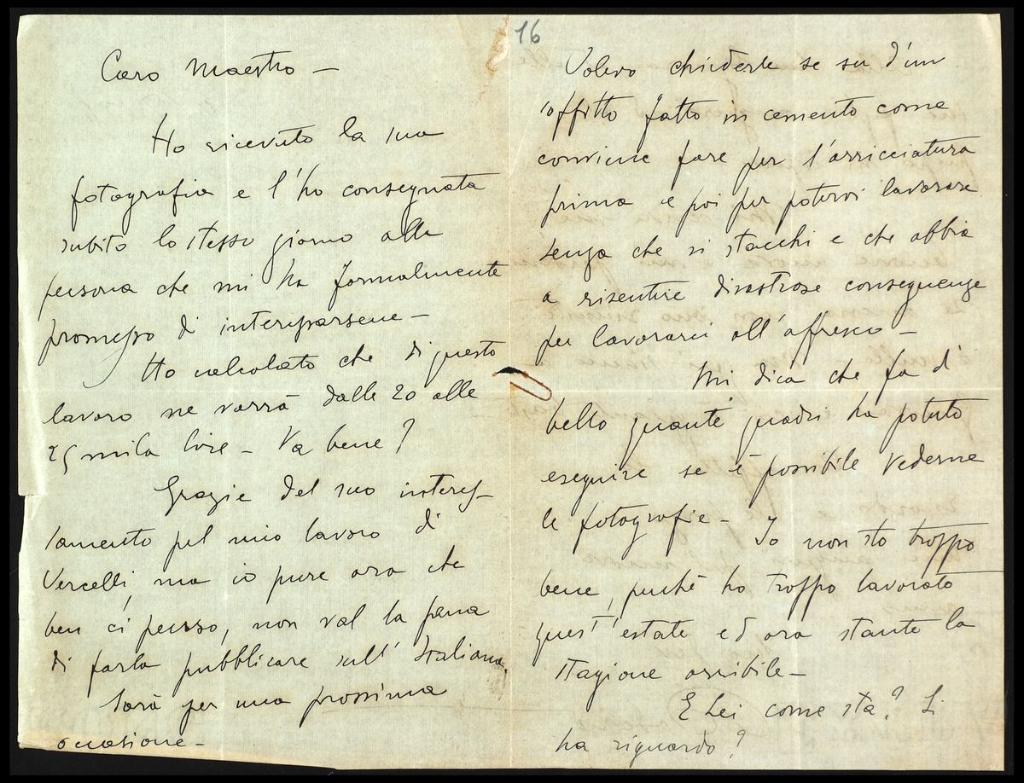 16
Caro Maestro –
Ho ricevuto la sua
fotografia e l'ho consegnata
subito lo stesso giorno alla
persona che mi ha formalmente
promesso di interessarsene –
Ho calcolato che di questo
lavoro ne varrà dalle 20 alle
25 mila lire – Va bene?
Grazie del suo interes-
samento pel mio lavoro di
Vercelli, ma io pure ora che
ben ci penso, non val la pena
di farla pubblicare sull'Italiana,
Sarà per una prossima
occasione –
Volevo chiederle se su d'un
soffitto fatto in cemento come
conviene fare per l'arricciatura
prima e poi per potervi lavorare
senza che si stacchi e che abbia
a risentire disastrose conseguenze
per lavorarci all'affresco –
Mi dica che fa di
bello quanti quadri ha potuto
eseguire se è possibile vederne
le fotografie – Io non sto troppo
bene, perchè ho troppo lavorato
quest'estate ed ora stante la
stagione orribile –
E Lei come sta? Si
ha riguardo?